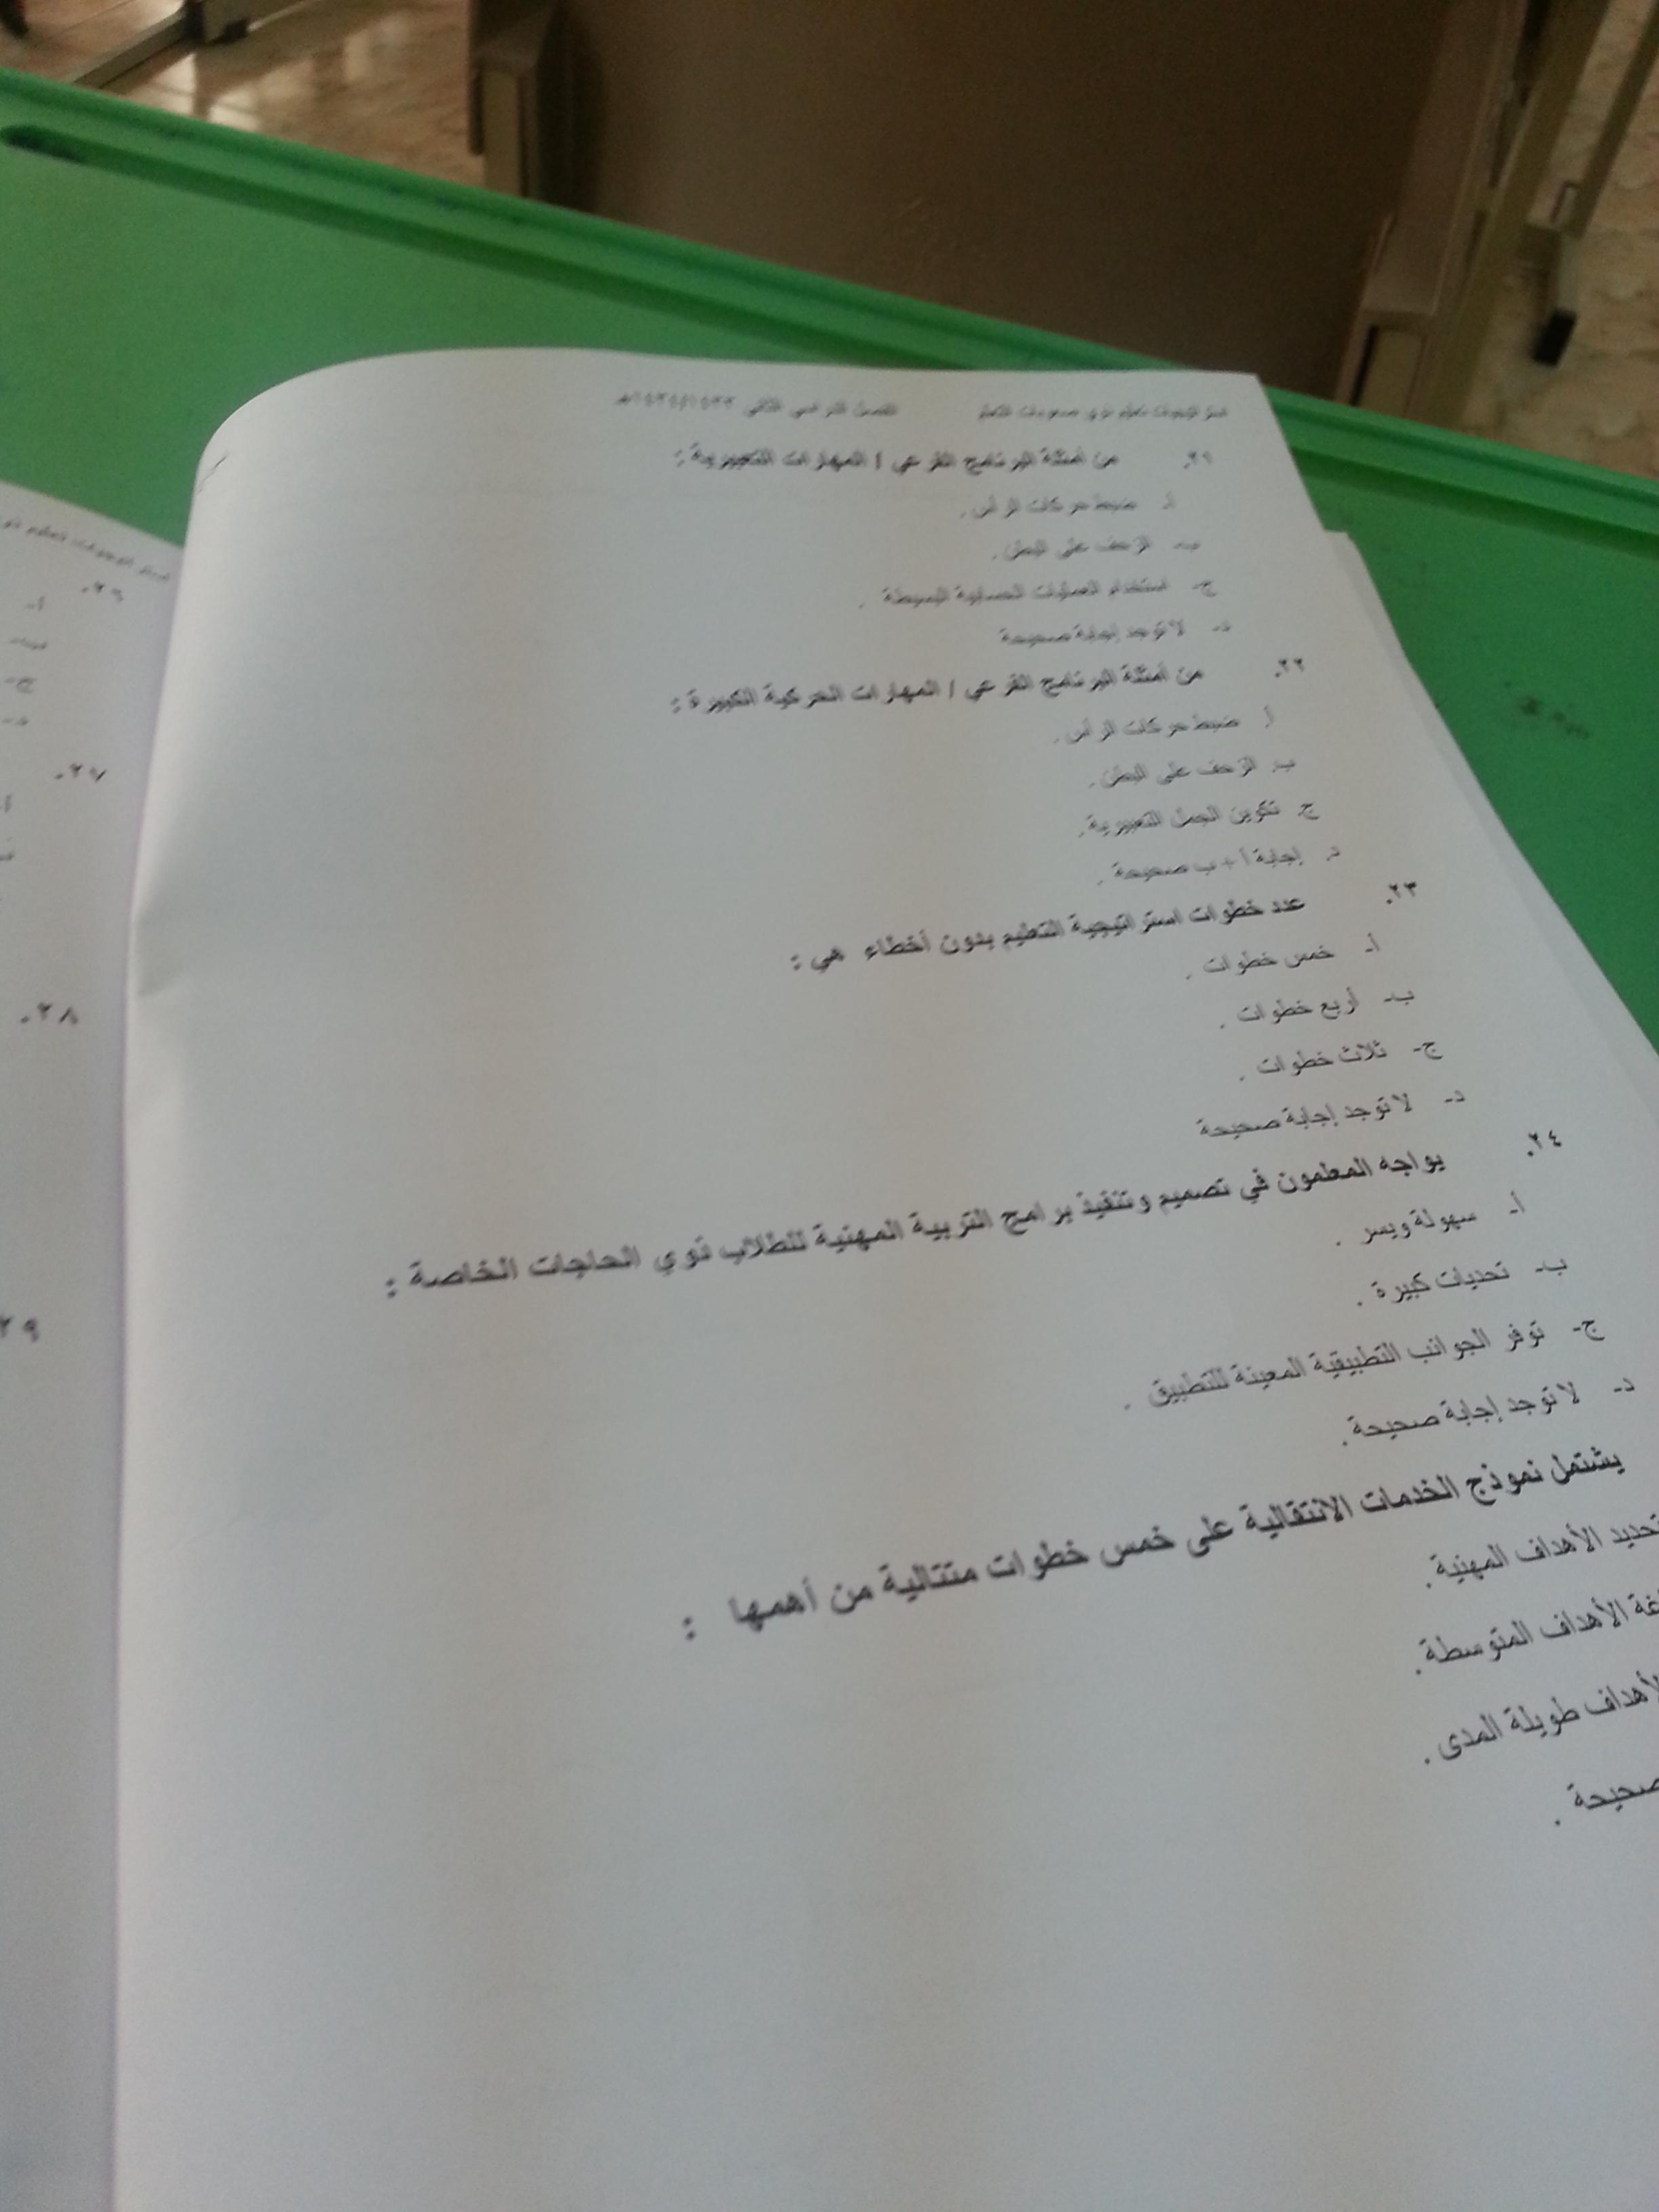 الفصل الدراسي الثاني ١٤٣٤/١٤٣٣هـ
٢١. من أمثلة البرنامج الفرعي / المهارات التعبيرية :
أ. ضبط حركات الرأس .
ب- الزحف على البطن .
ج- استخدام العمليات الحسابية البسيطة .
د- لا توجد إجابة صحيحة
٢٢. من أمثلة البرنامج الفرعي / المهارات الحركية الكبيرة :
أ. ضبط حركات الرأس .
ب. الزحف على البطن .
ج. تكوين الجمل التعبيرية.
د. إجابة أ + ب صحيحة .
٢٣. عدد خطوات استراتيجية التعليم بدون أخطاء هي :
أ- خمس خطوات .
ب- أربع خطوات .
ج- ثلاث خطوات .
د- لا توجد إجابة صحيحة
٢٤. يواجه المعلمون في تصميم وتنفيذ برامج التربية المهنية للطلاب ذوي الحاجات الخاصة :
أ- سهولة ويسر .
ب- تحديات كبيرة .
ج- توفر الجوانب التطبيقية المعينة للتطبيق .
د- لا توجد إجابة صحيحة.
يشتمل نموذج الخدمات الانتقالية على خمس خطوات متتالية من أهمها :
تحديد الأهداف المهنية.
الأهداف المتوسطة.
الأهداف طويلة المدى .
صحيحة .
٢٦.
أ-
ج-
د-
٢٧.
أ
٢٨.
٢٩